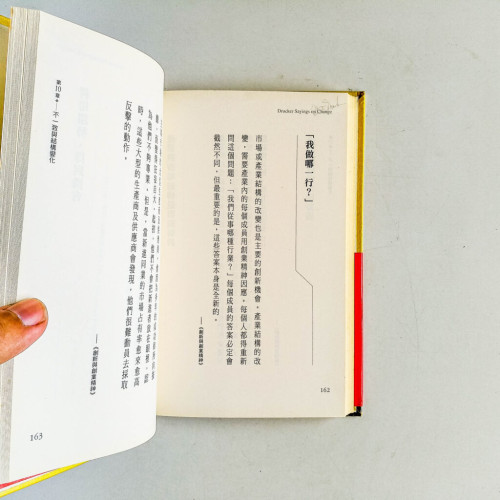 Drucker Sayings on Change
「我做哪一行？」
市場或產業結構的改變也是主要的創新機會。產業結構的改
變，需要產業內的每個成員用創業精神因應。每個人都得重新
問這個問題：「我們從事哪種行業？」每個成員的答案必定會
截然不同，但最重要的是，這些答案本身是全新的。
——《創新與創業精神》
162
為他們不夠專業。但是，當新進同業的市場占有率愈來愈高
時，這些大型的生產商及供應商會發現，他們很難動員去採取
反擊的動作。
——《創新與創業精神》
第10章 不一致與結構變化
163